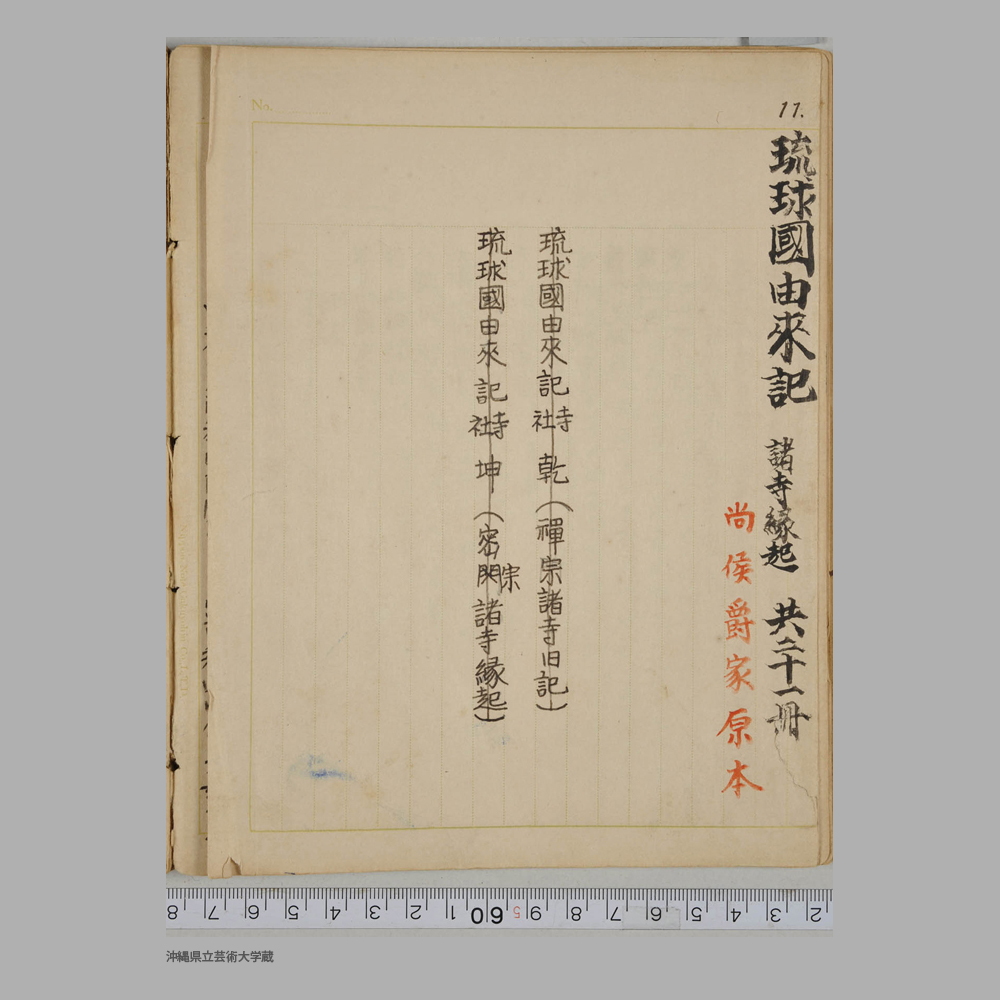 No.
11.
琉球國由來記 諸寺緣起 共二十一冊
尚侯爵家原本
琉球國由來記 寺社 乾（禪宗諸寺旧記）
琉球國由來記 寺社 坤（密門宗諸寺緣起）
8 7 6 5 4 3 2 1 60 5 9 8 7 6 5 4 3 2
沖縄県立芸術大学蔵